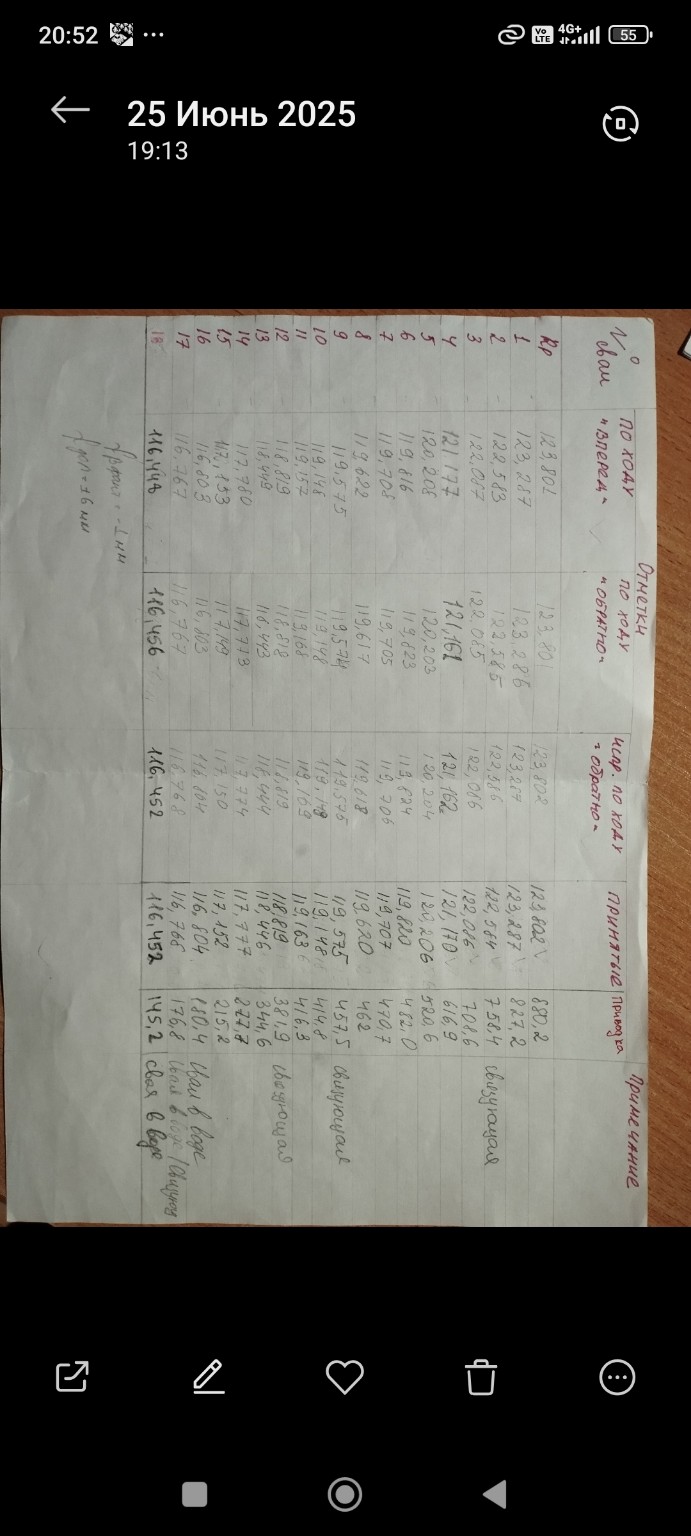 20:52 ... Vo LTE 4G+ 55
25 Июнь 2025
19:13
Отметки
№ сваи по ходу "вперед" по ходу "обратно" испр. по ходу "обратно" Принятые Приводка Примечание
Rp 123,802 123,801 123,802 123,802 880.2
1 123,287 123,286 123,287 123,287 827,2
2 122,583 122,585 122,586 122,584 758.4 связующая
3 122,087 122,085 122,086 122,086 708,6
4 121,177 121,161 121,162 121,170 616,9
5 120,208 120,203 120,204 120,206 520,6
6 119,816 119,823 119,824 119,820 482,0
7 119,708 119,705 119,706 119,707 470,7
8 119,622 119,617 119,618 119,620 462
9 119,575 119,574 119,575 119,575 457,5 связующая
10 119,148 119,148 119,149 119,148 414,8
11 119,157 119,168 119,169 119,163 416,3
12 118,819 118,818 118,819 118,819 381,9 связующая
13 118,449 118,443 118,444 118,446 344,6
14 117,780 117,773 117,774 117,777 277,7
15 117,153 117,149 117,150 117,152 215,2
16 116,803 116,803 116,804 116,804 180,4 свая в воде
17 116,767 116,767 116,768 116,768 176,8 свая в воде
18 116,448 116,456 116,452 116,452 145,2 свая в воде
fфакт = -1 мм
fдоп = ±6 мм